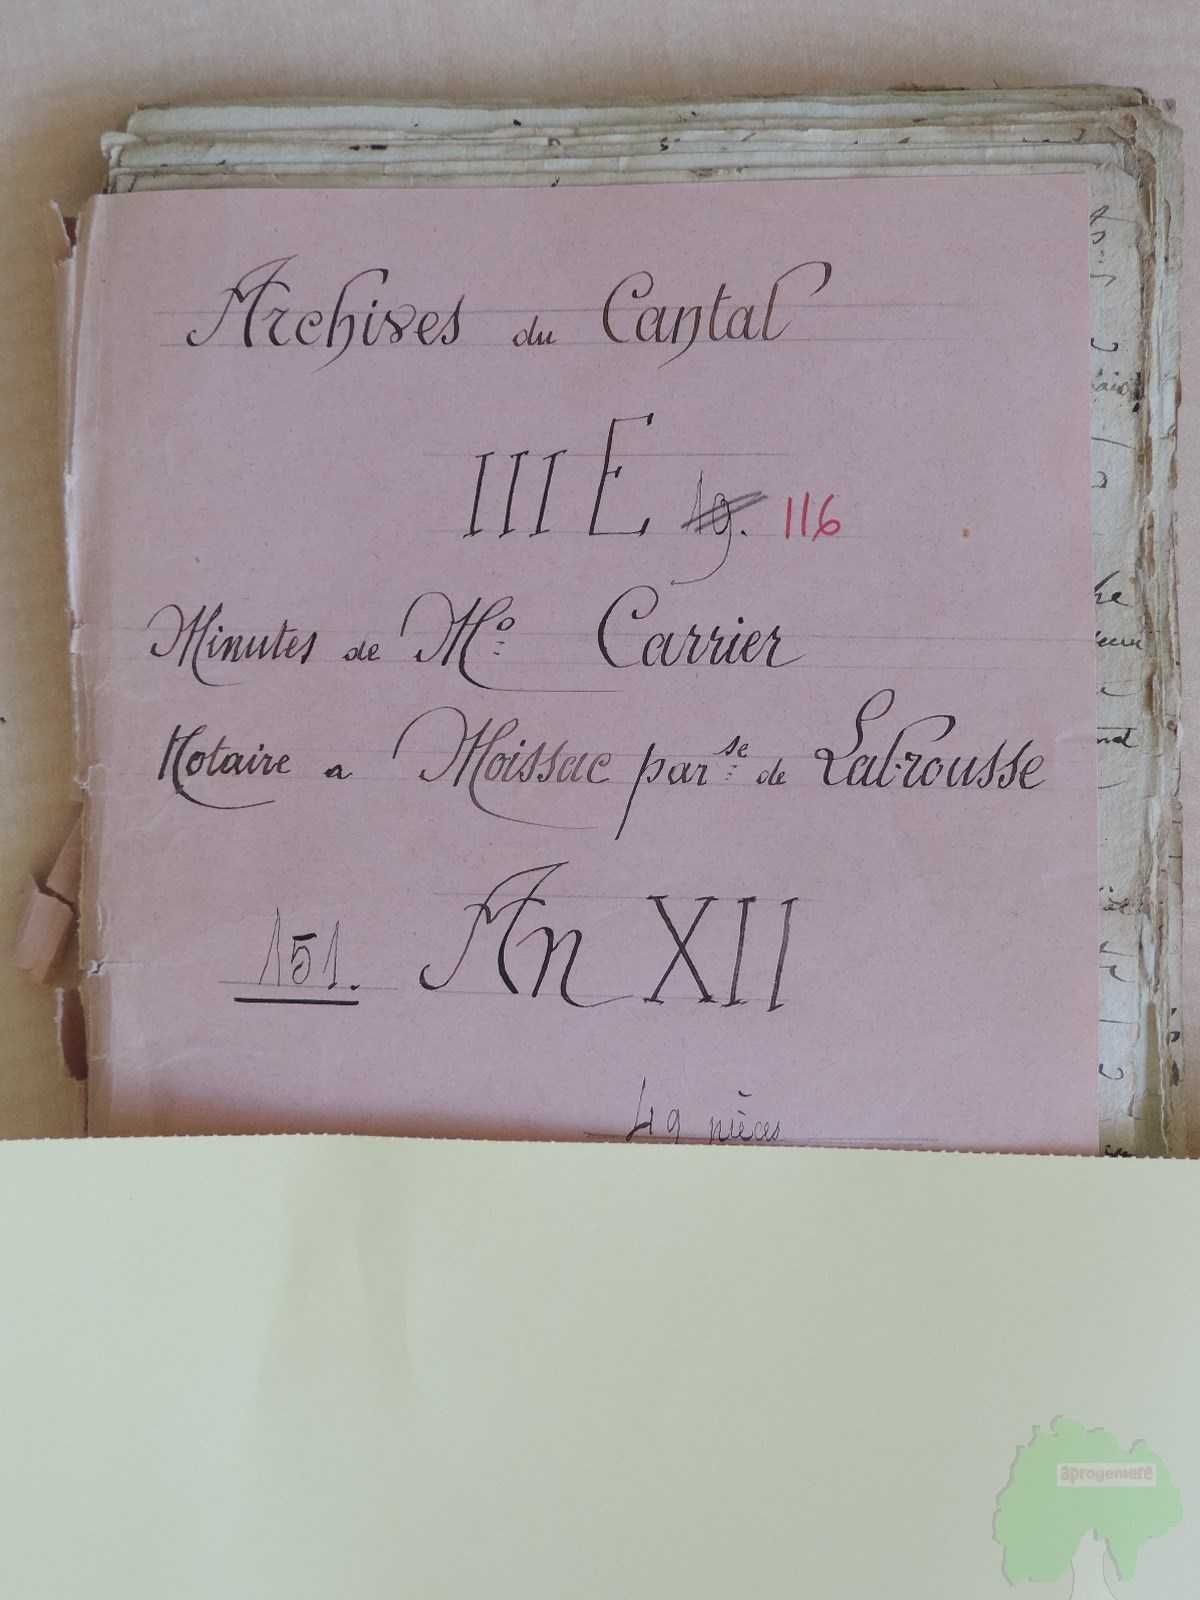 Archives du Cantal
III E 19. 116
Minutes de Mᵉ Carrier
Notaire a Moissac parˢᵉ de Labrousse
151. An XII
49 pièces
aprogemere